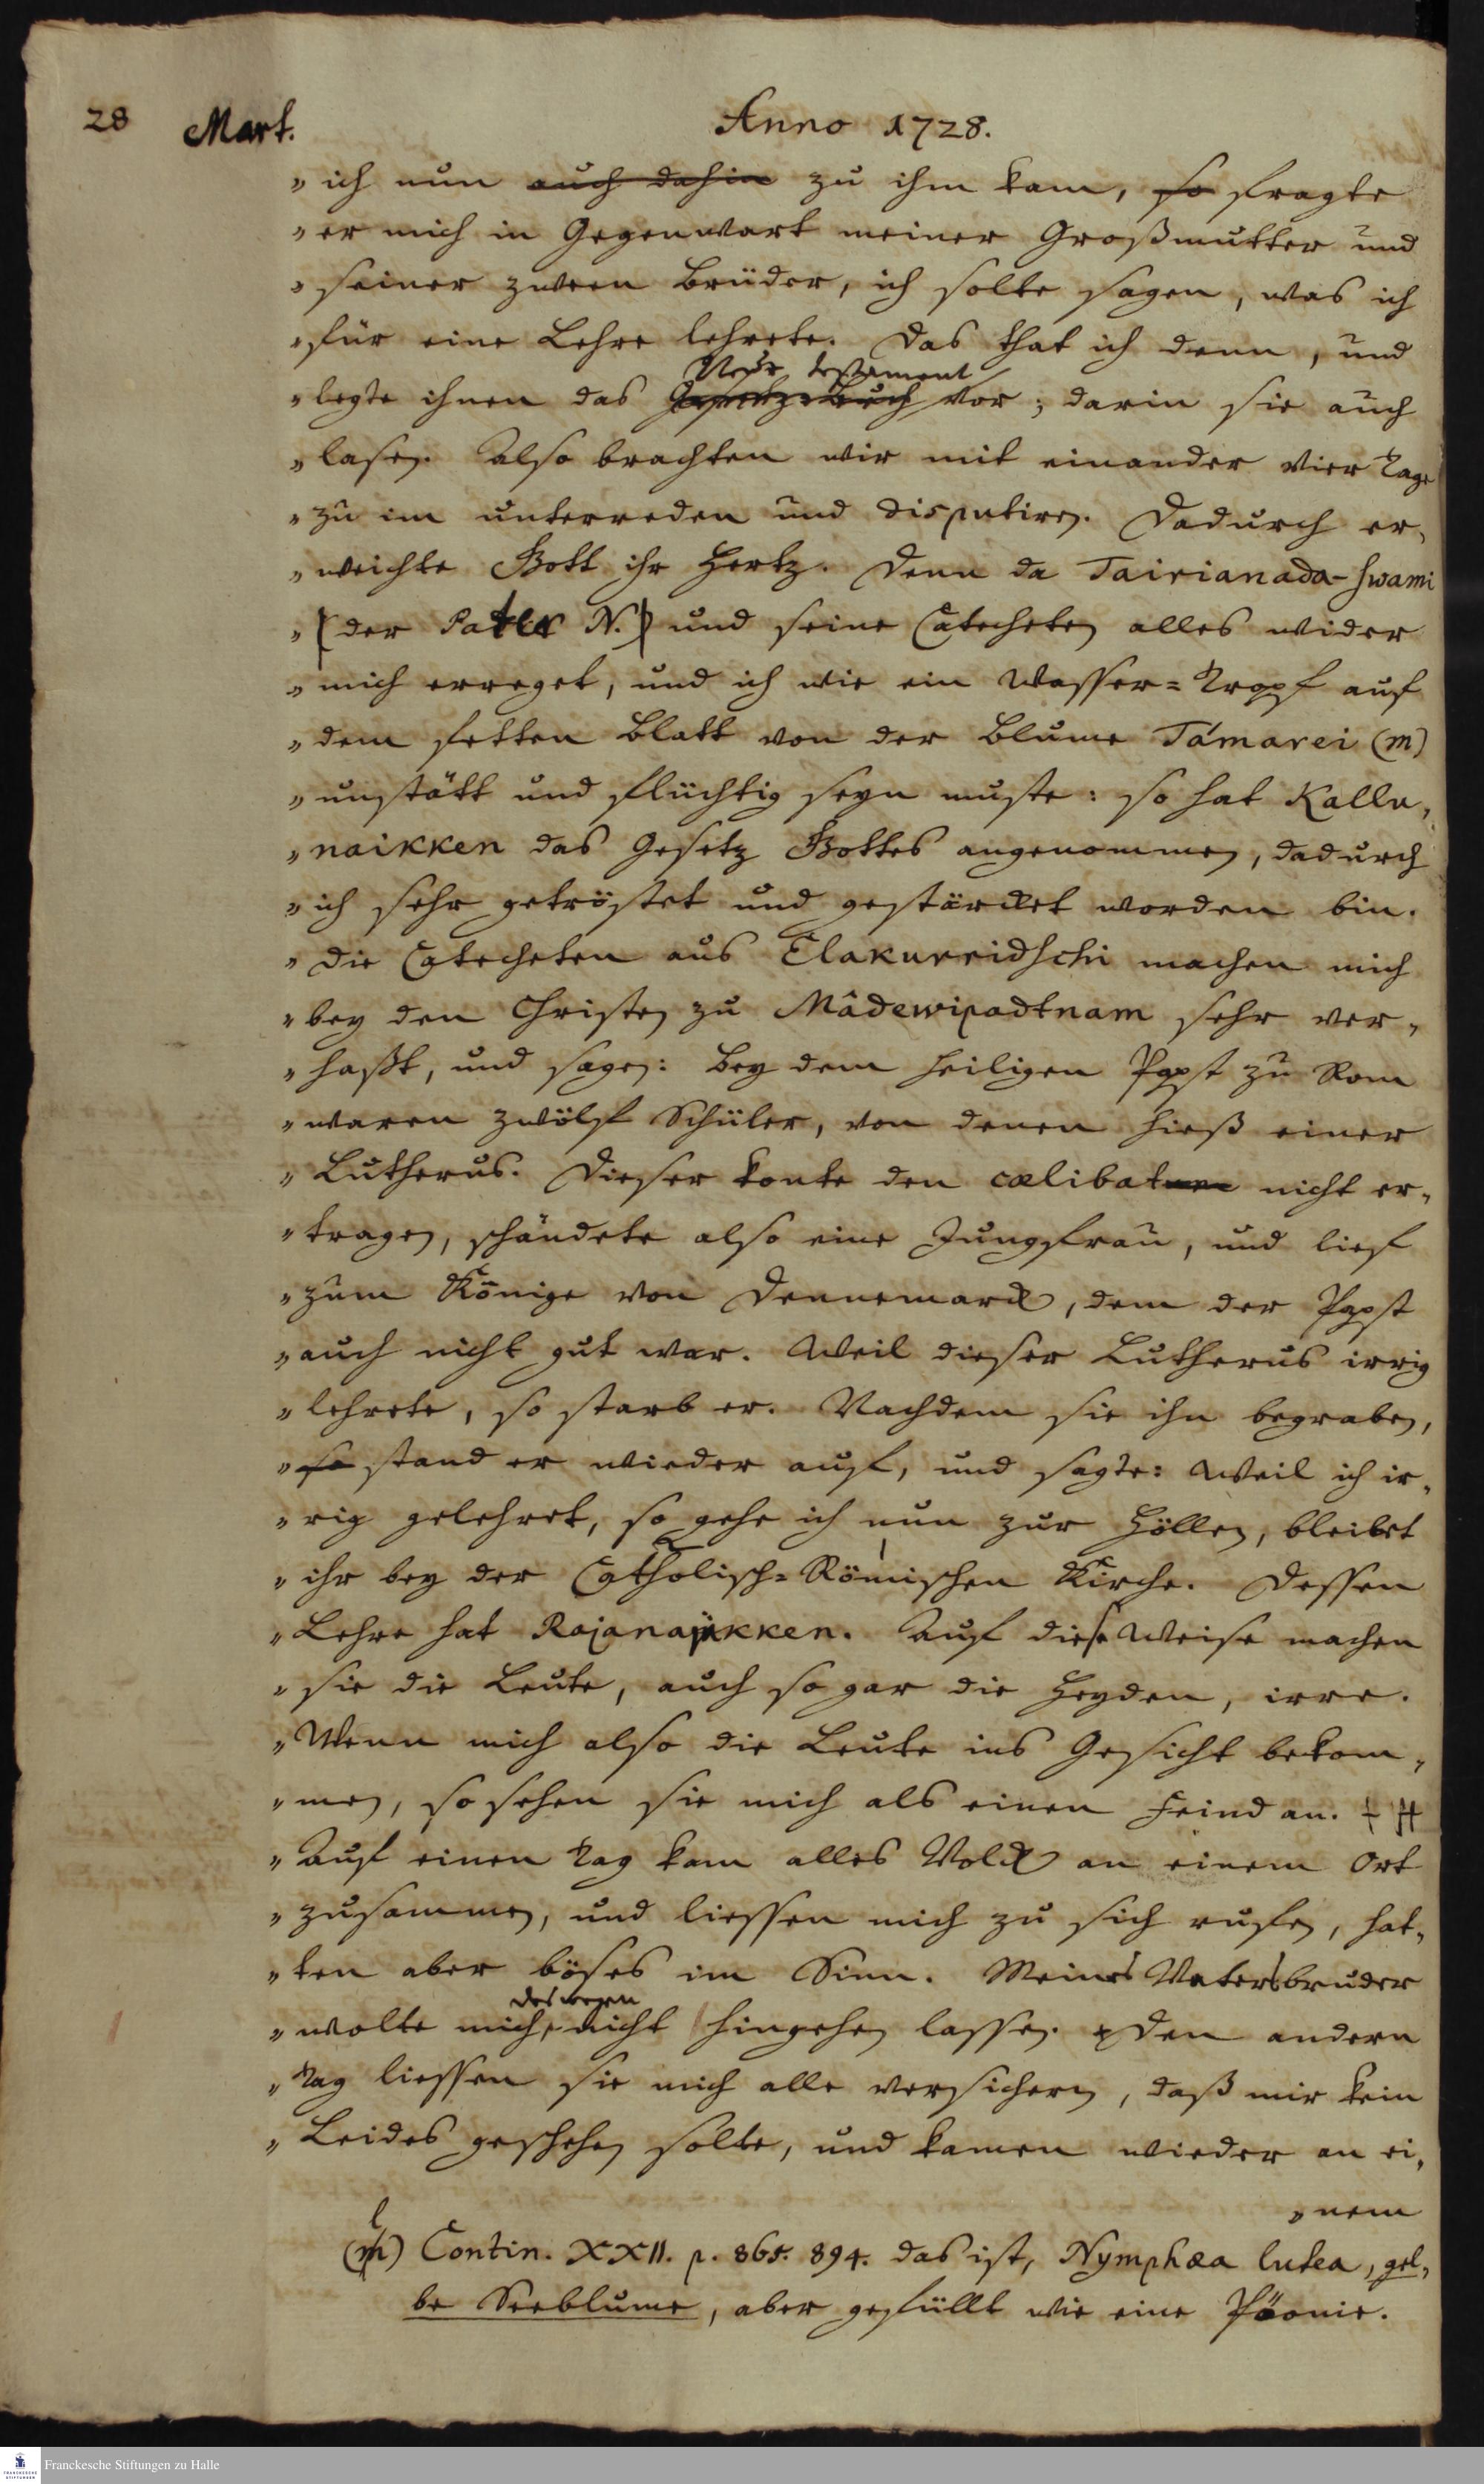 28 Mart. Anno 1728.
„ ich nun auch dahin zu ihm kam, so fragte
„ er mich in Gegenwart meiner Großmutter und
„ seiner zween Brüder, ich solte sagen, was ich
„ für eine Lehre lehrete. Das that ich denn, und
Neue Testament
„ legte ihnen das Gesetz-Buch vor; darin sie auch
„ lasen. Also brachten wir mit einander vier Tage
„ zu im unterreden und disputiren. Dadurch er-
„ weichte Gott ihr Hertz. Denn da Tairianada-Swami
„ (der Pater N.) und seine Catecheten alles wider
„ mich erreget, und ich wie ein Wasser-Tropf auf
„ dem fetten Blatt von der Blume Támarei (m)
„ unstätt und flüchtig seyn muste: so hat Kallu-
„ naikken das Gesetz Gottes angenommen, dadurch
„ ich sehr getröstet und gestärcket worden bin.
„ Die Catecheten aus Elakurridschi machen mich
„ bey den Christen zu Mâdewipadtnam sehr ver-
„ haßt, und sagen: Bey dem heiligen Papst zu Rom
„ waren zwölf Schüler, von denen hieß einer
„ Lutherus. Dieser konte den cælibatum nicht er-
„ tragen, schändete also eine Jungfrau, und lief
„ zum Könige von Dennemarck, dem der Papst
„ auch nicht gut war. Weil dieser Lutherus irrig
„ lehrete, so starb er. Nachdem sie ihn begraben,
„ so stand er wieder auf, und sagte: Weil ich ir-
„ rig gelehret, so gehe ich nun zur Höllen, bleibet
„ ihr bey der Catholisch-Römischen Kirche. Dessen
„ Lehre hat Rajanaikken. Auf diese Weise machen
„ sie die Leute, auch so gar die Heyden, irre.
„ Wenn mich also die Leute ins Gesicht bekom-
„ men, so sehen sie mich als einen Feind an.
„ Auf einen Tag kam alles Volck an einem Ort
„ zusammen, und liessen mich zu sich rufen, hat-
„ ten aber böses im Sinn. Meines Vatersbruder
deswegen
„ wolte mich nicht hingehen lassen. Den andern
„ Tag liessen sie mich alle versichern, daß mir kein
„ Leides geschehen solte, und kamen wieder an ei-
„ nem
l
(m) Contin. XXII. p. 865. 894. das ist, Nymphæa lutea, gel-
be Seeblume, aber gefüllt wie eine Päonie.
Franckesche Stiftungen zu Halle